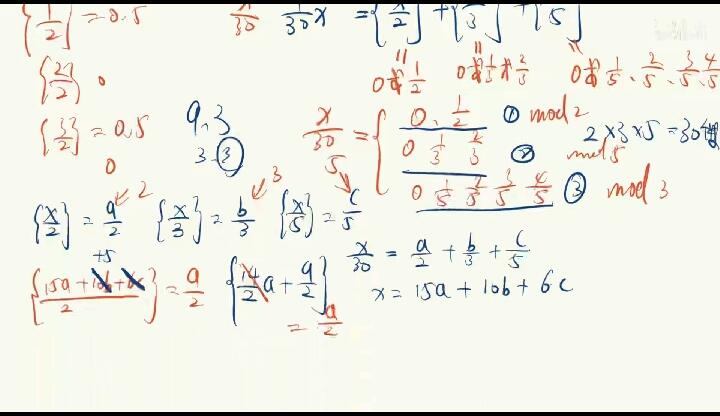 {1/2} = 0.5
x/30 1/30 x = {x/2} + { /3} + { /5}
{2 /2} 0
0 或 1/2
0 或 1/3 或 2/3
0 或 1/5、2/5、3/5、4/5
{33/2} = 0.5
0
9.3
3 . ③
x/30 = {
5
0、1/2 ① mod 2
0 1/3 2/3 ② mod 5
0 1/5 2/5 3/5 4/5 ③ mod 3
2×3×5 = 30
{x/2} = a/2 2
{x/3} = b/3 3
{x/5} = c/5 5
+5
x/30 = a/2 + b/3 + c/5
{(15a + 10b + 6c)/2} = a/2
{14/2 a + a/2} = a/2
x = 15a + 10b + 6c